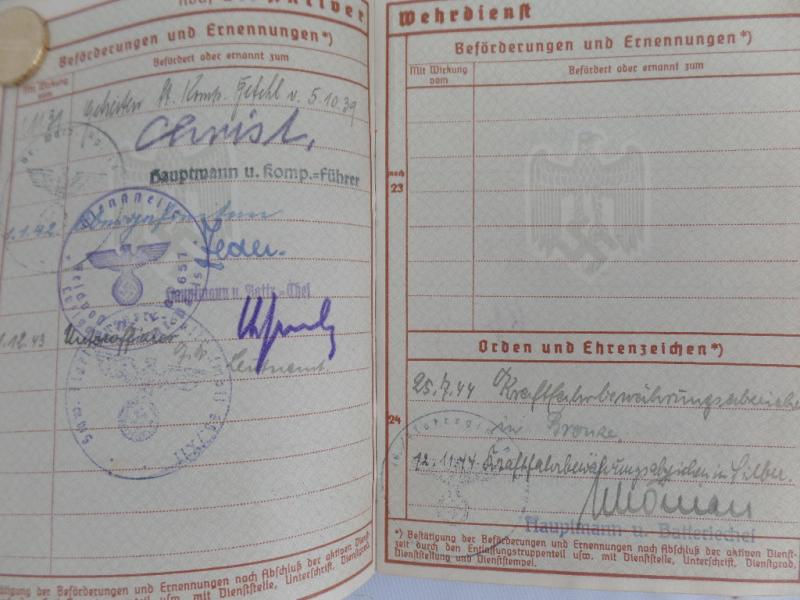 Aktiver
Beförderungen und Ernennungen*)
Mit Wirkung vom
Befördert oder ernannt zum
Gefreiten lt. Komp. Befehl v. 5.10.39
Christ,
Hauptmann u. Komp.=Führer
1.1.42
Hauptmann u. Battr.-Chef
1.12.43 Unteroffizier
Leutnant
Bestätigung der Beförderungen und Ernennungen nach Abschluß der aktiven Dienst-
usw. mit Dienststelle, Unterschrift, Dienstgrad,
Wehrdienst
Beförderungen und Ernennungen*)
Mit Wirkung vom
Befördert oder ernannt zum
noch
23
Orden und Ehrenzeichen*)
25.7.44 Kraftfahrbewährungsabzeichen
in Bronze.
24
12.11.44 Kraftfahrbewährungsabzeichen in Silber.
Hauptmann u. Batteriechef
*) Bestätigung der Beförderungen und Ernennungen nach Abschluß der aktiven Dienst-
zeit durch den Entlassungstruppenteil usw. mit Dienststelle, Unterschrift, Dienstgrad,
Dienststellung und Dienststempel.